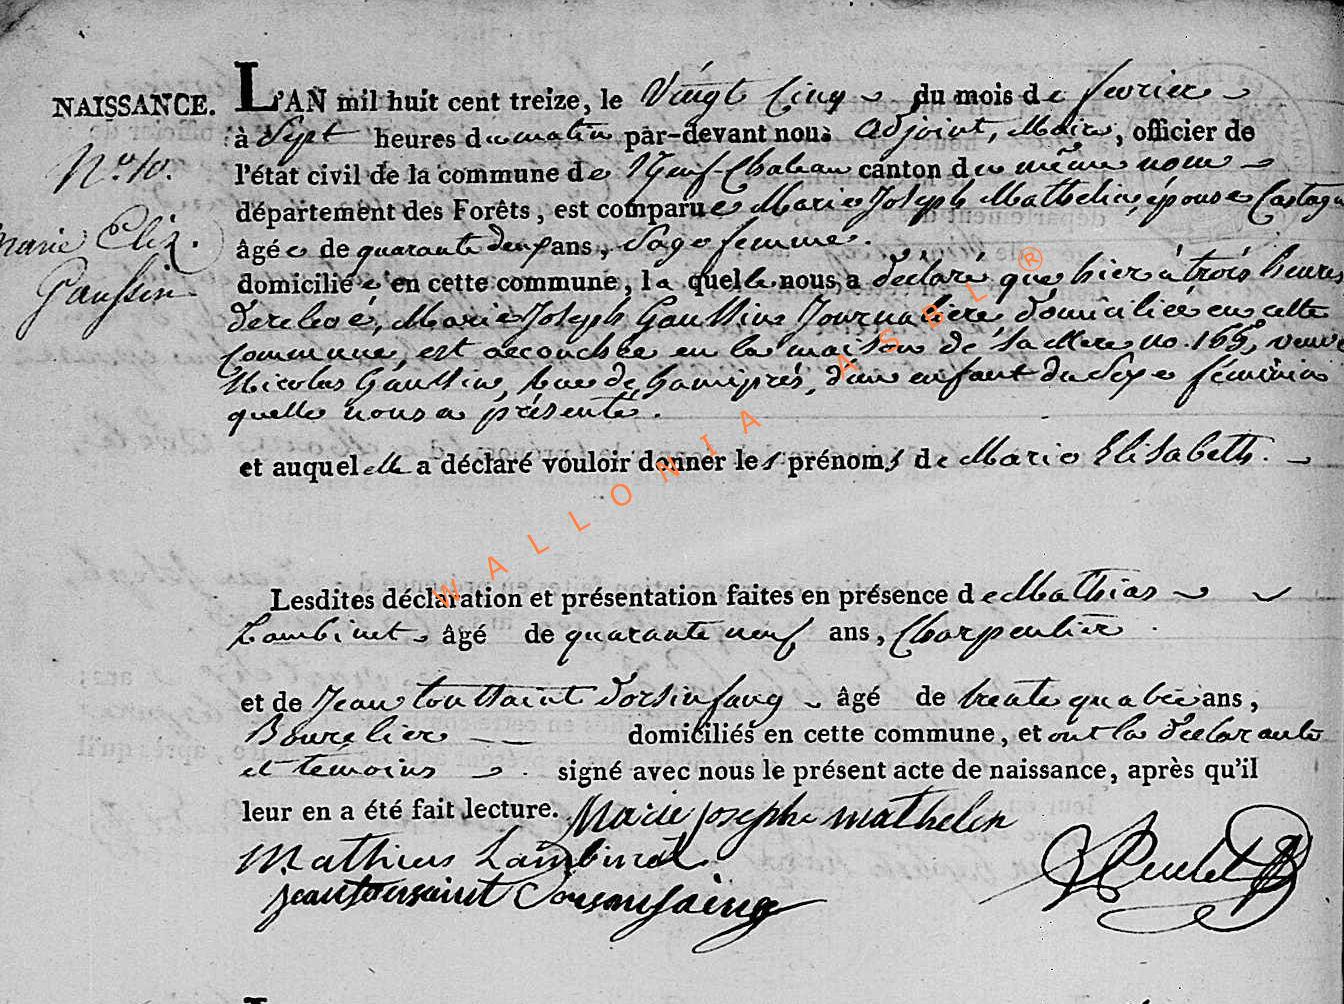 NAISSANCE.
No. 10.
Marie Eliz.
Gaussin
L'AN mil huit cent treize, le Vingt Cinq du mois de fevrier
à Sept heures du matin par-devant nous adjoint, Maire, officier de
l'état civil de la commune de Neuf-Chateau canton du même nom
département des Forêts, est comparue Marie Joseph Mathelin, épouse Castagn
âgée de quarante deux ans, Sage femme.
domiciliée en cette commune, laquelle nous a déclaré que hier à trois heures
de relevé, Marie Joseph Gaussin Journaliere domiciliée en cette
Commune, est accouchée en la maison de Sa Mere no. 169, veuve
Nicolas Gaussin, Rue de hamiprés, d'un enfant du Sexe féminin
quelle nous a présenté.
et auquel elle a déclaré vouloir donner les prénoms de Marie Elisabeth.
Lesdites déclaration et présentation faites en présence de Mathias
Lambinet âgé de quarante neuf ans, Charpentier.
et de Jean toussaint Dorsinfang âgé de trente quatre ans,
Bourelier domiciliés en cette commune, et ont la déclarante
et temoins signé avec nous le présent acte de naissance, après qu'il
leur en a été fait lecture. Marie josephe mathelin
Mathieus Lambinet
jean toussaint Dorsansaing
WALLONIA ASBL ®